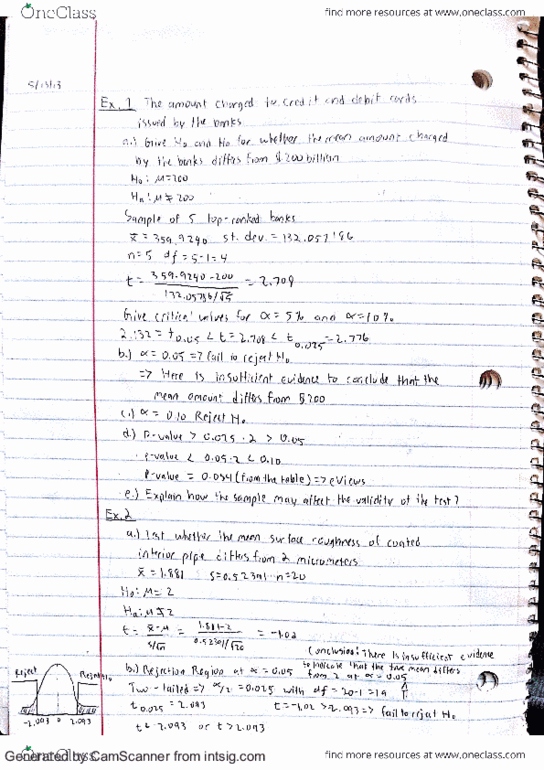 OneClass
find more resources at www.oneclass.com
5/13/13
Ex. 1 The amount charged in credit and debit cards
issued by the banks
a.) Give H₀ and Ha for whether the mean amount charged
by the banks differs from $200 billion
H₀: μ=200
Ha: μ≠200
Sample of 5 top-ranked banks
x̄ = 359.9240 st. dev. = 132.05796
n=5 df = 5-1=4
t = 359.9240-200 / 132.05796/√5 = 2.708
Give critical values for α = 5% and α=10%
2.132 = t0.05 < t = 2.708 < t0.025 = 2.776
b.) α = 0.05 => fail to reject H₀
=> There is insufficient evidence to conclude that the
mean amount differs from $200
c.) α = 0.10 Reject H₀
d.) P-value > 0.025 · 2 > 0.05
P-value < 0.05 · 2 < 0.10
P-value = 0.054 (from the table) => eViews
e.) Explain how the sample may affect the validity of the test?
Ex. 2
a.) Test whether the mean surface roughness of coated
interior pipe differs from 2 micrometers
x̄ = 1.881 s=0.5239 n=20
H₀: μ = 2
Ha: μ ≠ 2
t = x̄ - μ / s/√n = 1.881-2 / 0.5239/√20 = -1.02
Conclusion: There is insufficient evidence
to indicate that the true mean differs
from 2 at α = 0.05
b.) Rejection Region at α = 0.05
Two-tailed => α/2 = 0.025 with df = 20-1 = 19
t0.025 = 2.093
t = -1.02 > -2.093 => fail to reject H₀
t < -2.093 or t > 2.093
Reject
Reject
-2.093 0 2.093
Generated by CamScanner from intsig.com
OneClass
find more resources at www.oneclass.com